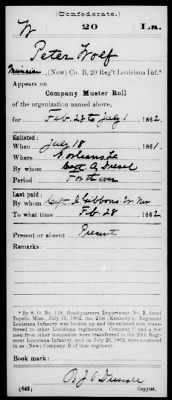 (Confederate.)
W 20 La.
Peter Wolf
, (New) Co. B, 20 Reg't Louisiana Inf.*
Appears on
Company Muster Roll
of the organization named above,
for Feb 28 to July 1, 1862.
Enlisted:
When July 18, 1861.
Where N. Orleans La
By whom Capt A.
Period For the war
Last paid:
By whom Capt. J. Gibbons
To what time Feb. 28, 1862.
Present or absent Present
Remarks:
*By S. O. No. 118, Headquarters Department No. 2, dated Tupelo, Miss., July 1862, the 21st (Kennedy's) Regiment Louisiana Infantry was broken up and the enlisted men transferred to other Louisiana regiments. Company C and a few men from other companies were transferred to the 20th Regiment Louisiana Infantry, and on July 23, 1862, were mustered in as (New) Company B of that regiment.
Book mark:
(642)
Copyist.